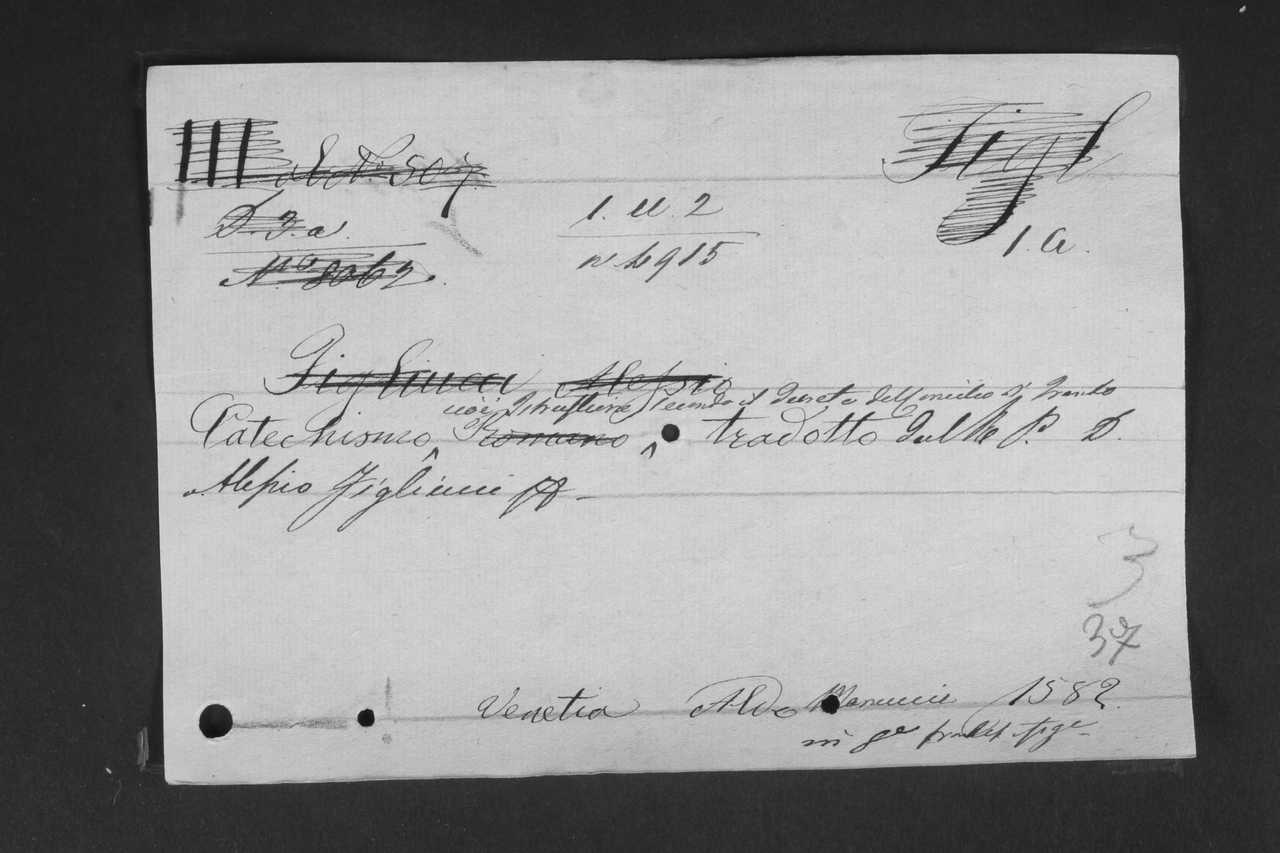 III
Figl
D. J. a.
1. a 2
No 8062.
n. 4915
1. a.
Figliucci Alessio
cioè Istruttione secondo il Decreto dell Concilio di Trento
Catechismo Romano tradotto dal R P. D.
Alessio Figliucci
3
37
Venetia Aldo Manucci 1582.
in 8o